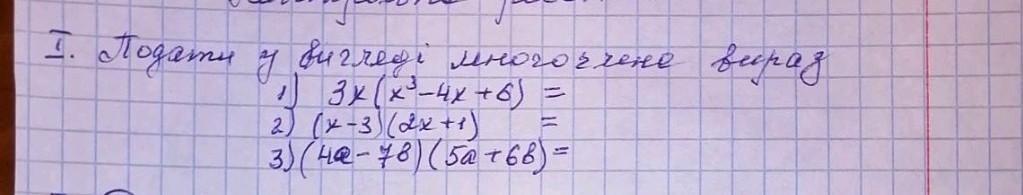 I. Подати у вигледі многочлена вираз
1) 3x(x³-4x+6) =
2) (x-3)(2x+1) =
3) (4a-7в)(5a+6в)=